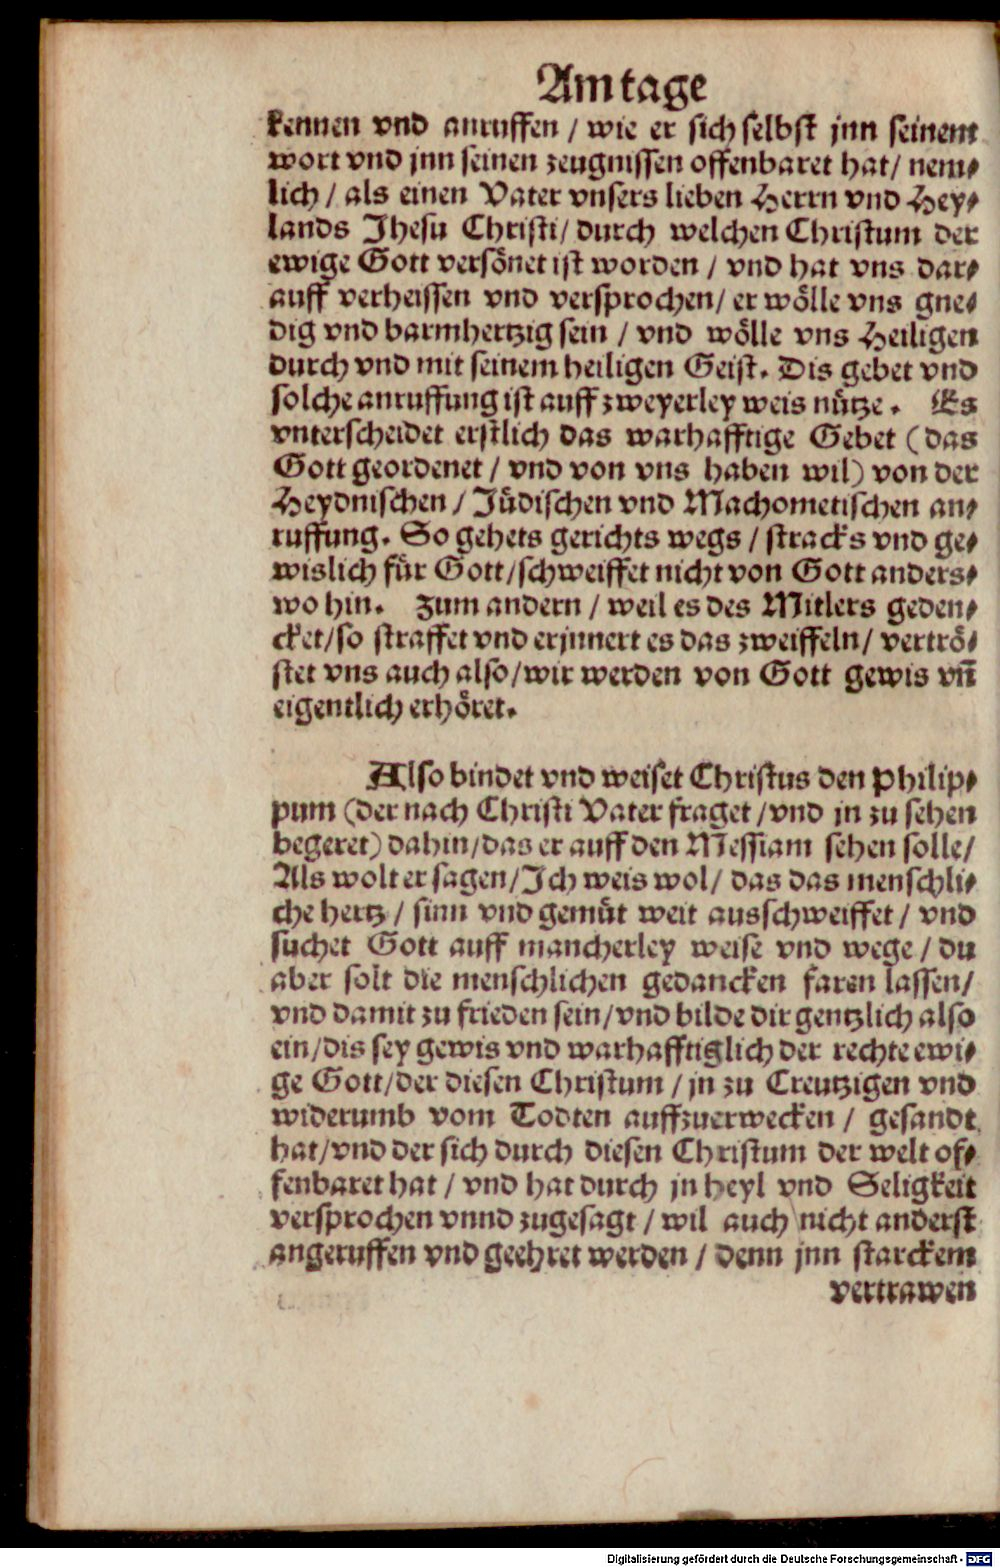 Am tage
kennen vnd anruffen / wie er sich selbst jnn seinem
wort vnd jnn seinen zeugnissen offenbaret hat / nem⸗
lich / als einen Vater vnsers lieben Herrn vnd Hey⸗
lands Jhesu Christi / durch welchen Christum der
ewige Gott versönet ist worden / vnd hat vns dar⸗
auff verheissen vnd versprochen / er wölle vns gne⸗
dig vnd barmhertzig sein / vnd wölle vns Heiligen
durch vnd mit seinem heiligen Geist. Dis gebet vnd
solche anruffung ist auff zweyerley weis nütze. Es
vnterscheidet erstlich das warhafftige Gebet (das
Gott geordenet / vnd von vns haben wil) von der
Heydnischen / Jüdischen vnd Machometischen an⸗
ruffung. So gehets gerichts wegs / stracks vnd ge⸗
wislich für Gott / schweiffet nicht von Gott anders⸗
wo hin. Zum andern / weil es des Mitlers geden⸗
cket / so straffet vnd erjnnert es das zweiffeln / vertrö⸗
stet vns auch also / wir werden von Gott gewis vn̄
eigentlich erhöret.
Also bindet vnd weiset Christus den Philip⸗
pum (der nach Christi Vater fraget / vnd jn zu sehen
begeret) dahin / das er auff den Messiam sehen solle /
Als wolt er sagen / Ich weis wol / das das menschli⸗
che hertz / sinn vnd gemüt weit ausschweiffet / vnd
suchet Gott auff mancherley weise vnd wege / du
aber solt die menschlichen gedancken faren lassen /
vnd damit zu frieden sein / vnd bilde dir gentzlich also
ein / dis sey gewis vnd warhafftiglich der rechte ewi⸗
ge Gott / der diesen Christum / jn zu Creutzigen vnd
widerumb vom Todten auffzuerwecken / gesandt
hat / vnd der sich durch diesen Christum der welt of⸗
fenbaret hat / vnd hat durch jn heyl vnd Seligkeit
versprochen vnnd zugesagt / wil auch nicht anderst
angeruffen vnd geehret werden / denn jnn starckem
vertrawen
Digitalisierung gefördert durch die Deutsche Forschungsgemeinschaft - DFG